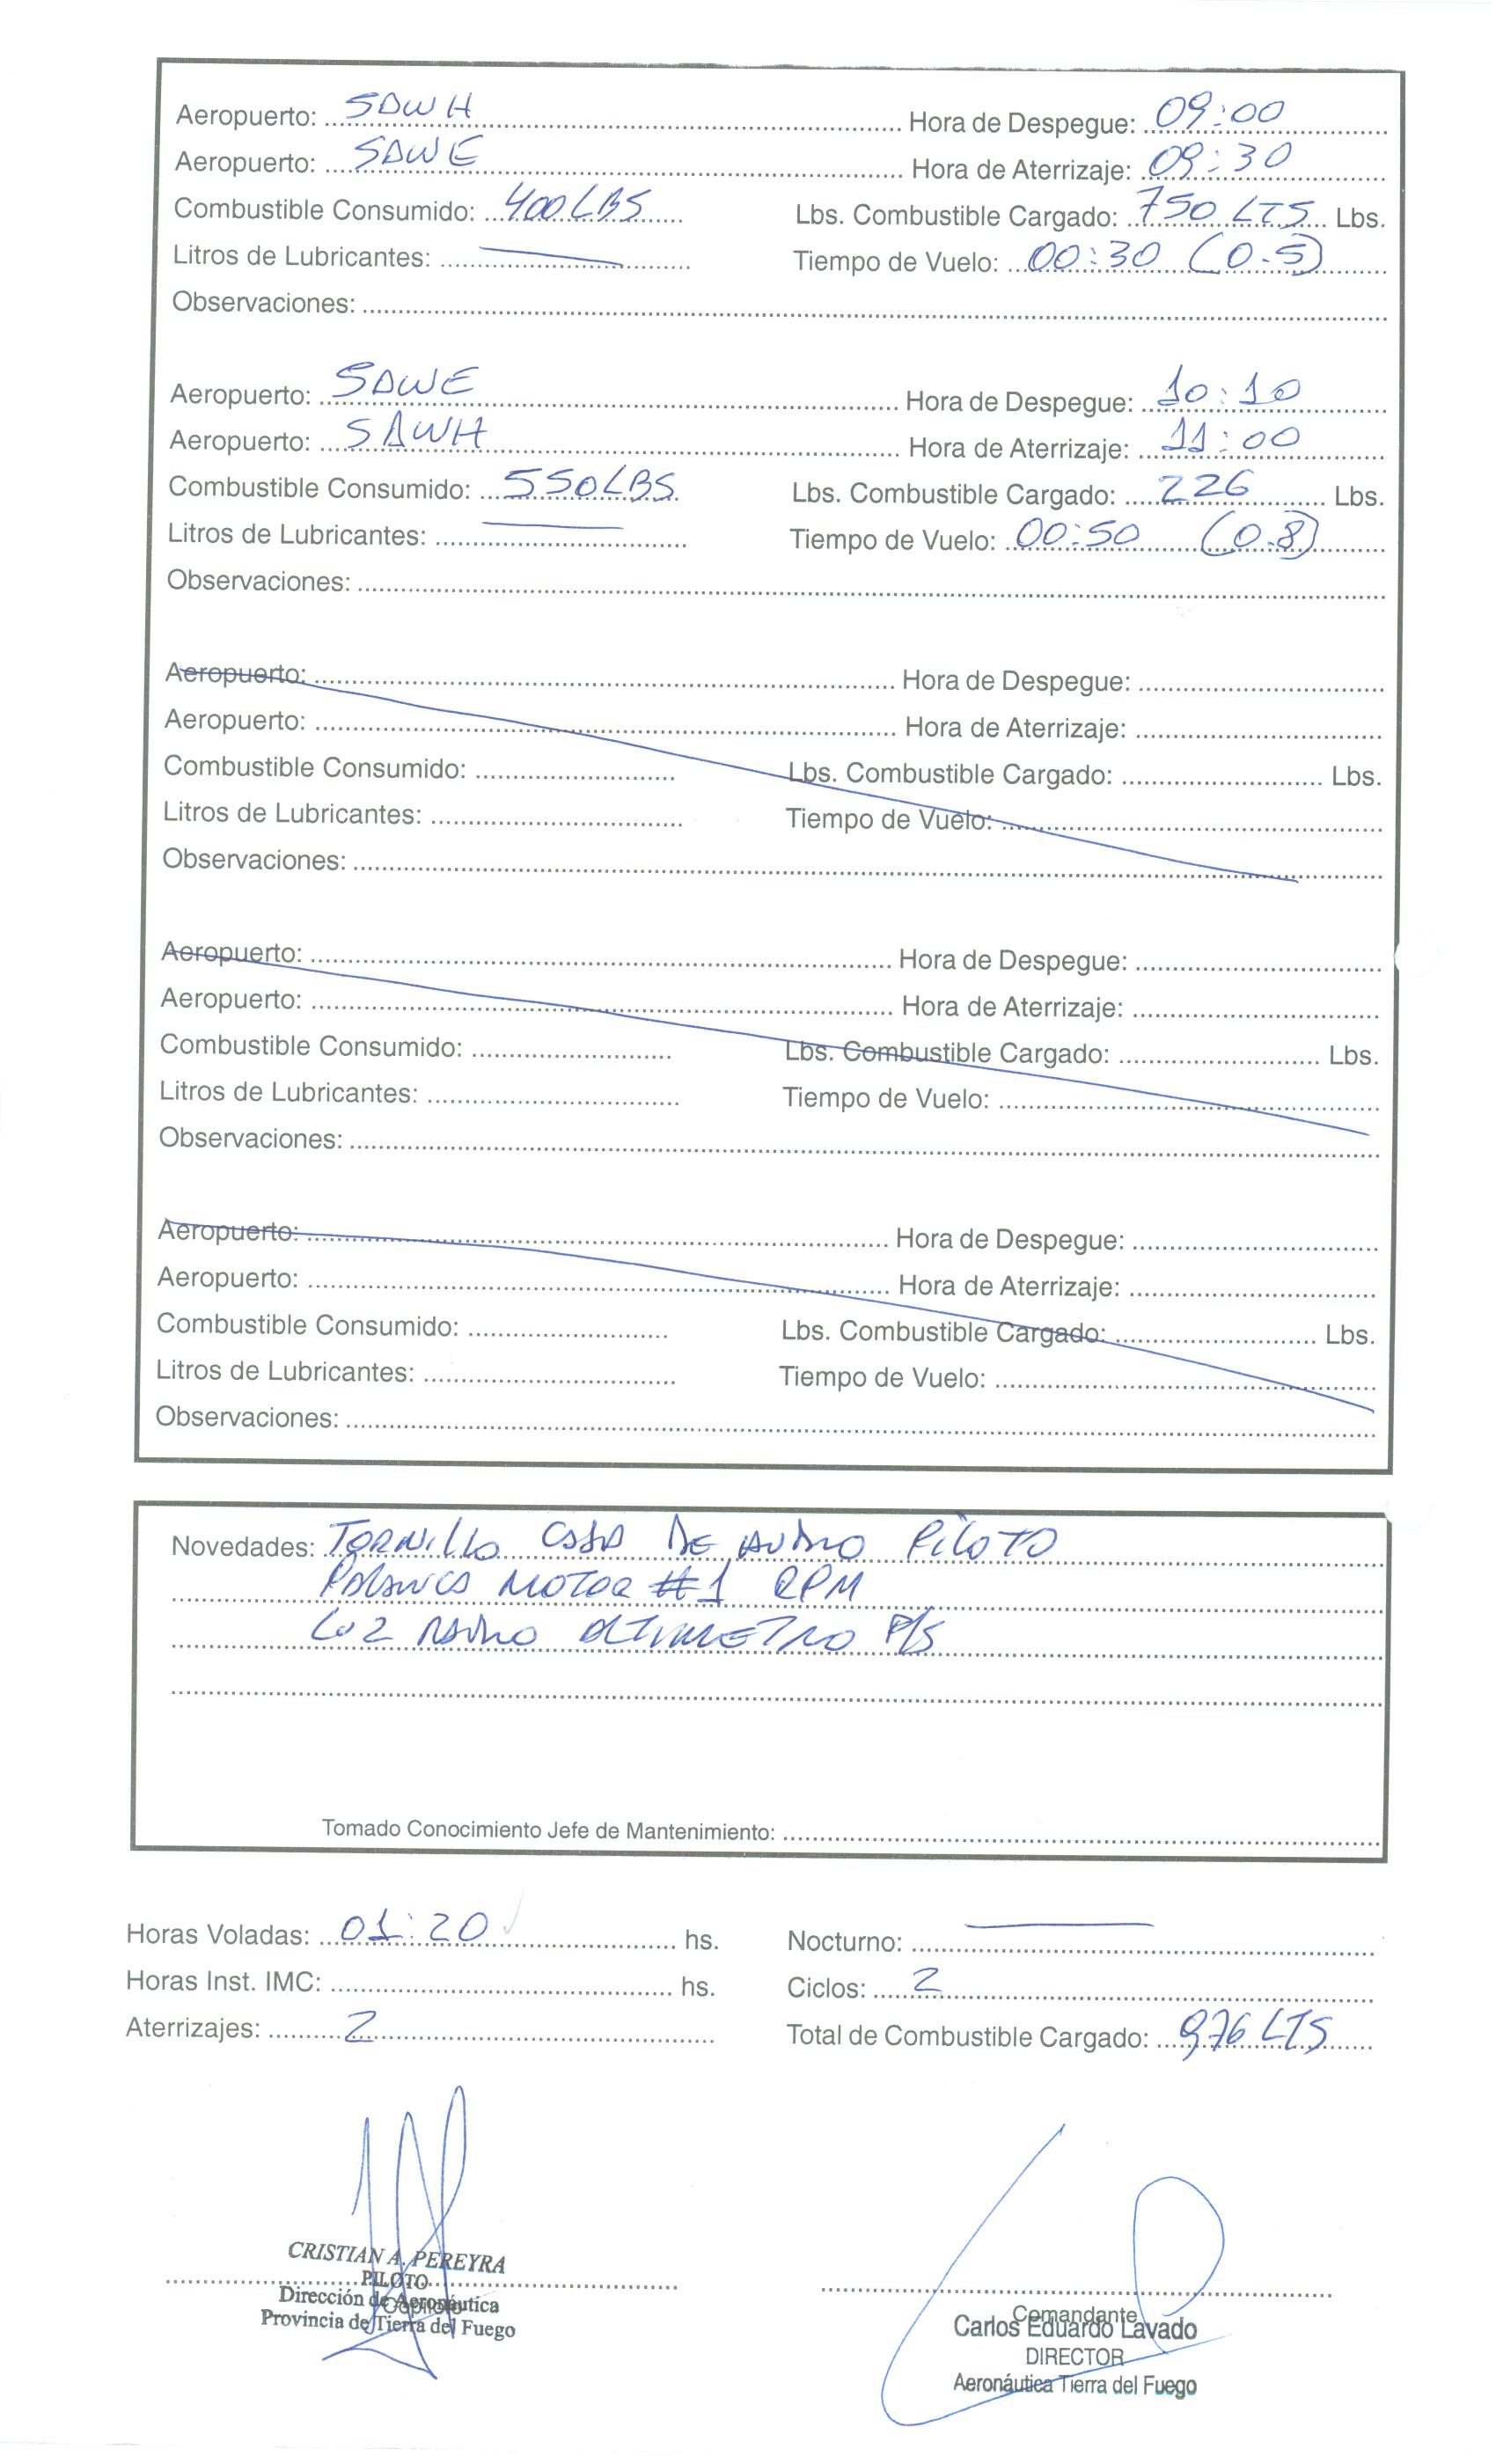 Aeropuerto: SAWH Hora de Despegue: 09:00
Aeropuerto: SAWE Hora de Aterrizaje: 09:30
Combustible Consumido: 400 LBS Lbs. Combustible Cargado: 750 LTS Lbs.
Litros de Lubricantes: Tiempo de Vuelo: 00:30 (0.5)
Observaciones:
Aeropuerto: SAWE Hora de Despegue: 10:10
Aeropuerto: SAWH Hora de Aterrizaje: 11:00
Combustible Consumido: 550 LBS Lbs. Combustible Cargado: 226 Lbs.
Litros de Lubricantes: Tiempo de Vuelo: 00:50 (0.8)
Observaciones:
Aeropuerto: Hora de Despegue:
Aeropuerto: Hora de Aterrizaje:
Combustible Consumido: Lbs. Combustible Cargado: Lbs.
Litros de Lubricantes: Tiempo de Vuelo:
Observaciones:
Aeropuerto: Hora de Despegue:
Aeropuerto: Hora de Aterrizaje:
Combustible Consumido: Lbs. Combustible Cargado: Lbs.
Litros de Lubricantes: Tiempo de Vuelo:
Observaciones:
Aeropuerto: Hora de Despegue:
Aeropuerto: Hora de Aterrizaje:
Combustible Consumido: Lbs. Combustible Cargado: Lbs.
Litros de Lubricantes: Tiempo de Vuelo:
Observaciones:
Novedades: TORNILLO CAJA DE AUDIO PILOTO
PALANCA MOTOR #1 RPM
LUZ RADIO ALTIMETRO P/S
Tomado Conocimiento Jefe de Mantenimiento:
Horas Voladas: 01:20 hs. Nocturno:
Horas Inst. IMC: hs. Ciclos: 2
Aterrizajes: 2 Total de Combustible Cargado: 976 LTS
CRISTIAN A. PEREYRA
PILOTO
Dirección de Aeronáutica
Copiloto
Provincia de Tierra del Fuego
Comandante
Carlos Eduardo Lavado
DIRECTOR
Aeronáutica Tierra del Fuego